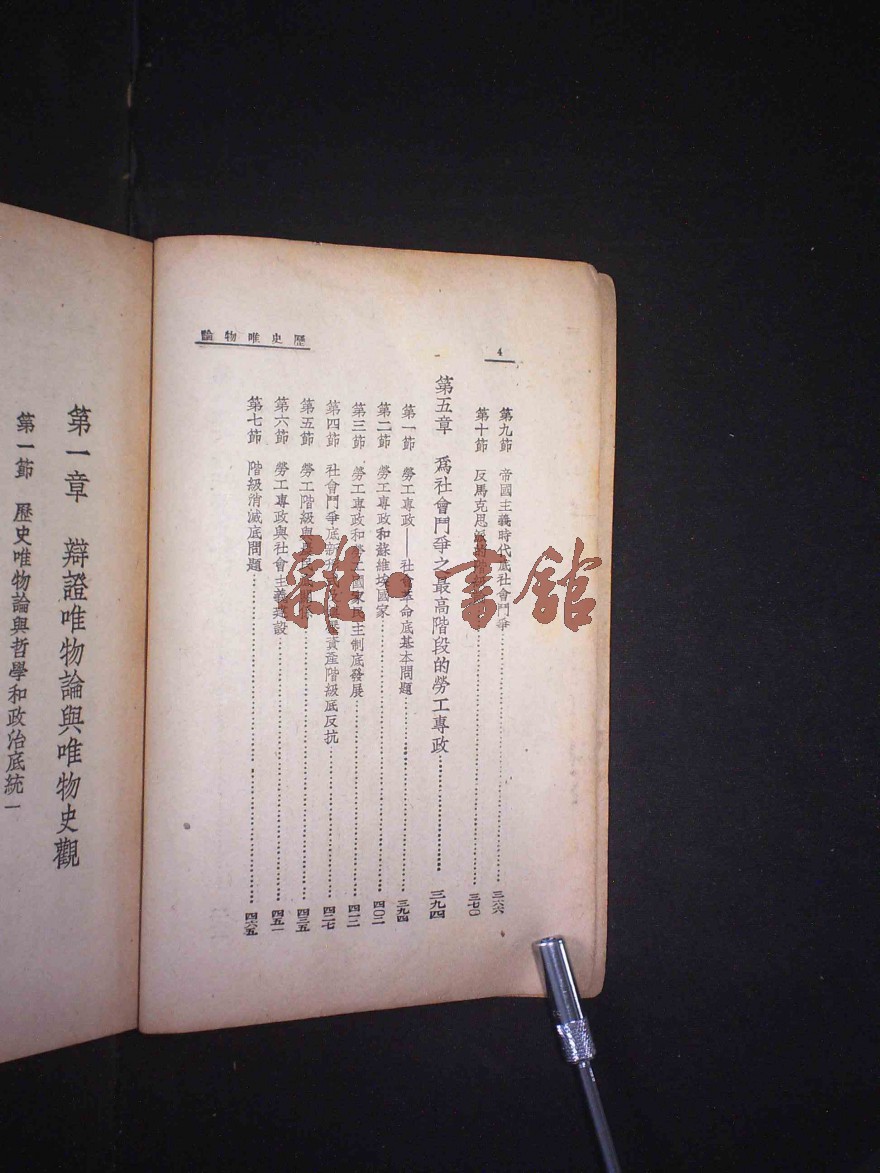 歷史唯物論
4
第九節 帝國主義時代底社會鬥爭 三六六
第十節 反馬克思派的 三七〇
第五章 爲社會鬥爭之最高階段的勞工專政 三九四
第一節 勞工專政——社會革命底基本問題 三九四
第二節 勞工專政和蘇維埃國家 四〇二
第三節 勞工專政和勞工國家民主制底發展 四一二
第四節 社會鬥爭底新 資產階級底反抗 四二七
第五節 勞工階級與 四三五
第六節 勞工專政與社會主義建設 四五一
第七節 階級消滅底問題 四六五
第一章 辯證唯物論與唯物史觀
第一節 歷史唯物論與哲學和政治底統一
雜·書館